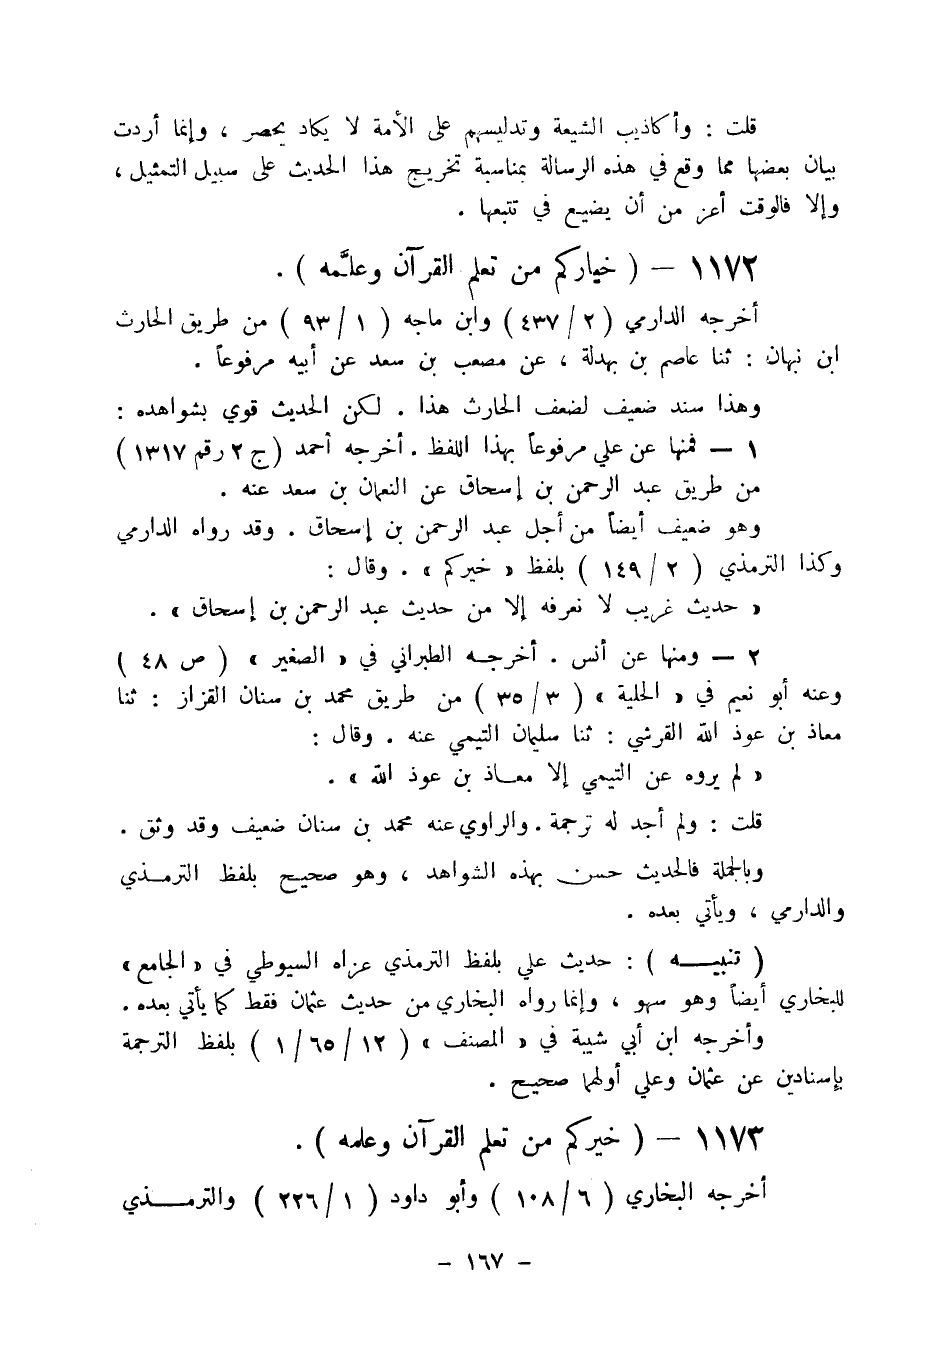 قلت : وأكاذيب الشيعة وتدليسهم على الأمة لا يكاد يحصر ، وإنما أردت
بيان بعضها مما وقع في هذه الرسالة بمناسبة تخريج هذا الحديث على سبيل التمثيل ،
وإلا فالوقت أعز من أن يضيع في تتبعها .
١١٧٢ – ( خياركم من تعلم القرآن وعلَّمه ) .
أخرجه الدارمي ( ٢ / ٤٣٧ ) وابن ماجه ( ١ / ٩٣ ) من طريق الحارث
ابن نبهان : ثنا عاصم بن بهدلة ، عن مصعب بن سعد عن أبيه مرفوعاً .
وهذا سند ضعيف لضعف الحارث هذا . لكن الحديث قوي بشواهده :
١ – فمنها عن علي مرفوعاً بهذا اللفظ . أخرجه أحمد ( ج ٢ رقم ١٣١٧ )
من طريق عبد الرحمن بن إسحاق عن النعمان بن سعد عنه .
وهو ضعيف أيضاً من أجل عبد الرحمن بن إسحاق . وقد رواه الدارمي
وكذا الترمذي ( ٢ / ١٤٩ ) بلفظ « خيركم » . وقال :
« حديث غريب لا نعرفه إلا من حديث عبد الرحمن بن إسحاق » .
٢ – ومنها عن أنس . أخرجه الطبراني في « الصغير » ( ص ٤٨ )
وعنه أبو نعيم في « الحلية » ( ٣ / ٣٥ ) من طريق محمد بن سنان القزاز : ثنا
معاذ بن عوذ الله القرشي : ثنا سليمان التيمي عنه . وقال :
« لم يروه عن التيمي إلا معاذ بن عوذ الله » .
قلت : ولم أجد له ترجمة . والراوي عنه محمد بن سنان ضعيف وقد وثق .
وبالجملة فالحديث حسن بهذه الشواهد ، وهو صحيح بلفظ الترمذي
والدارمي ، ويأتي بعده .
( تنبيه ) : حديث علي بلفظ الترمذي عزاه السيوطي في « الجامع »
للبخاري أيضاً وهو سهو ، وإنما رواه البخاري من حديث عثمان فقط كما يأتي بعده .
وأخرجه ابن أبي شيبة في « المصنف » ( ١٢ / ٦٥ / ١ ) بلفظ الترجمة
بإسنادين عن عثمان وعلي أولهما صحيح .
١١٧٣ – ( خيركم من تعلم القرآن وعلمه ) .
أخرجه البخاري ( ٦ / ١٠٨ ) وأبو داود ( ١ / ٢٢٦ ) والترمذي
– ١٦٧ –